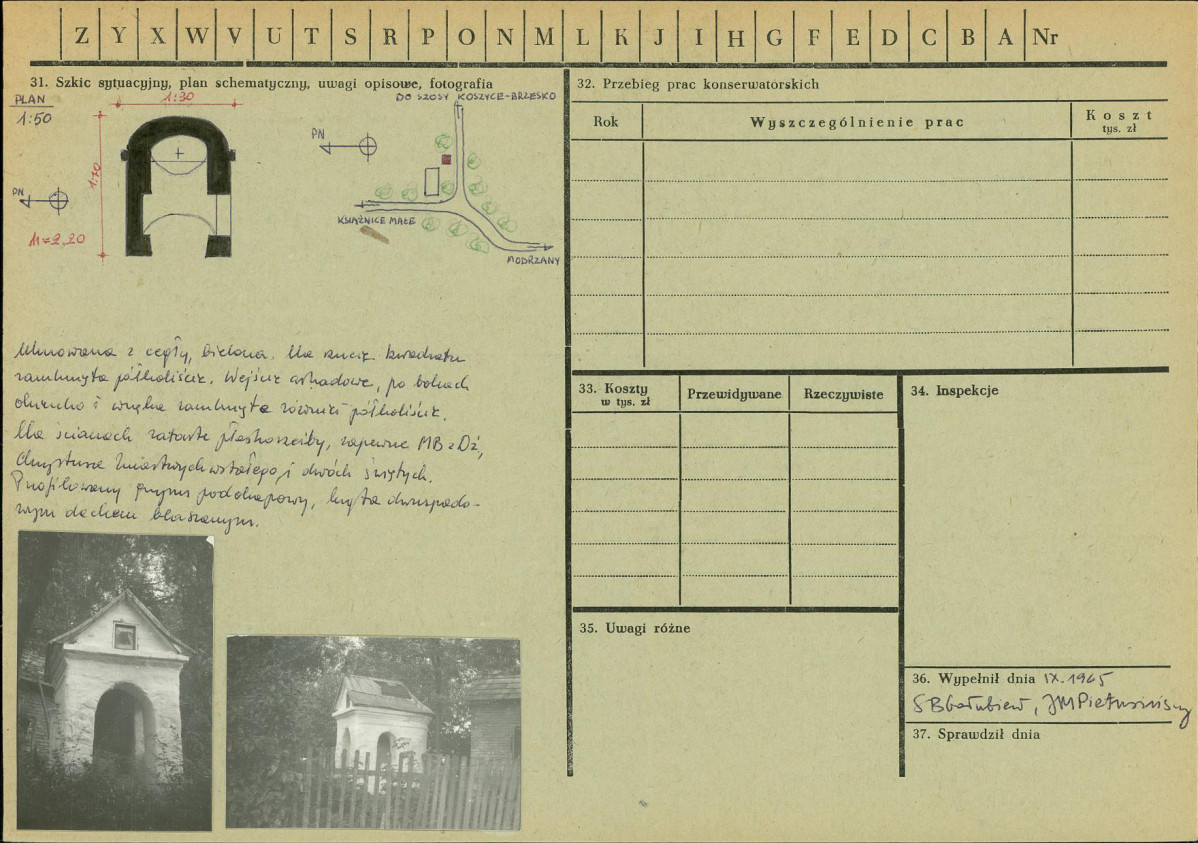 Z Y X W V U T S R P O N M L K J I H G F E D C B A Nr
31. Szkic sytuacyjny, plan schematyczny, uwagi opisowe, fotografia
PLAN
1:50
1:30
1:70
PN
H=2,20
DO SZOSY KOSZYCE-BRZESKO
PN
KSIĄŻNICE MAŁE
MODRZANY
Murowana z cegły, bielona. Na rzucie kwadratu
zamknięta półkoliście. Wejście arkadowe, po bokach
okienko i wnęka zamknięta również półkoliście.
Na ścianach zatarte płaskorzeźby, zapewne MB z Dz,
Chrystusa Zmartwychwstałego i dwóch świętych.
Profilowany gzyms podokapowy, kryta dwuspado-
wym dachem blaszanym.
32. Przebieg prac konserwatorskich
Rok
Wyszczególnienie prac
Koszt
tys. zł
33. Koszty
w tys. zł
Przewidywane
Rzeczywiste
34. Inspekcje
35. Uwagi różne
36. Wypełnił dnia IX.1965
37. Sprawdził dnia